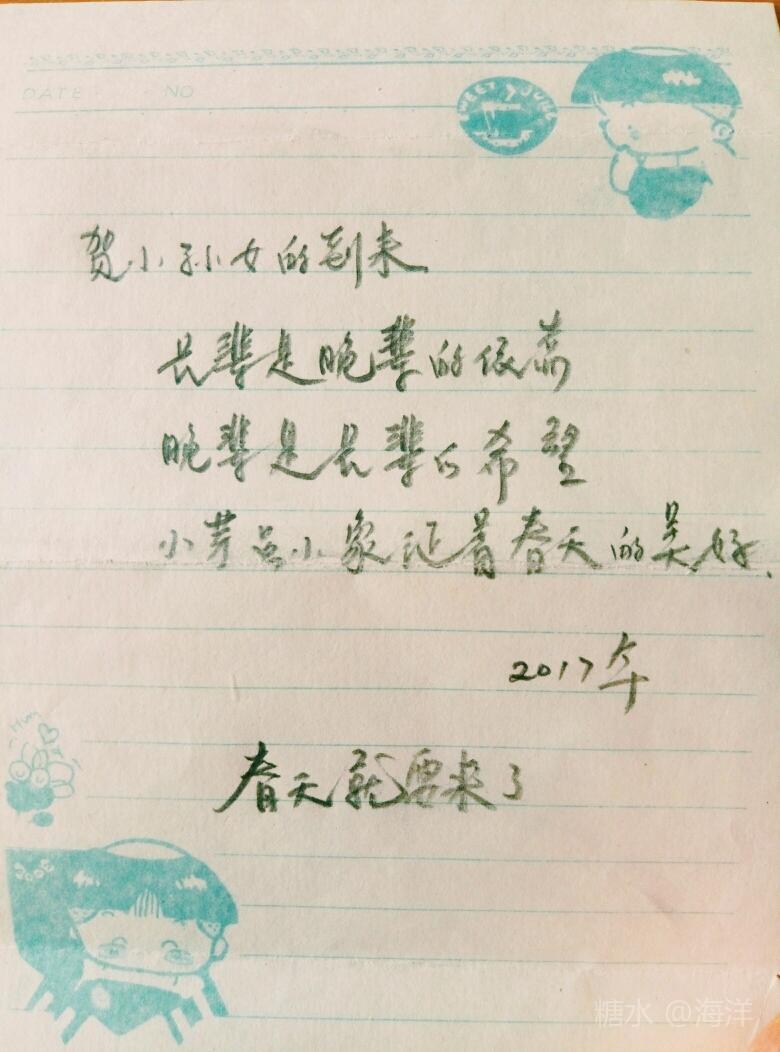 DATE NO
SWEET JULY
贺小孙女的到来
长辈是晚辈的依靠
晚辈是长辈的希望
小芽吕小象征着春天的美好.
2017年
春天就要来了
糖水 @海洋